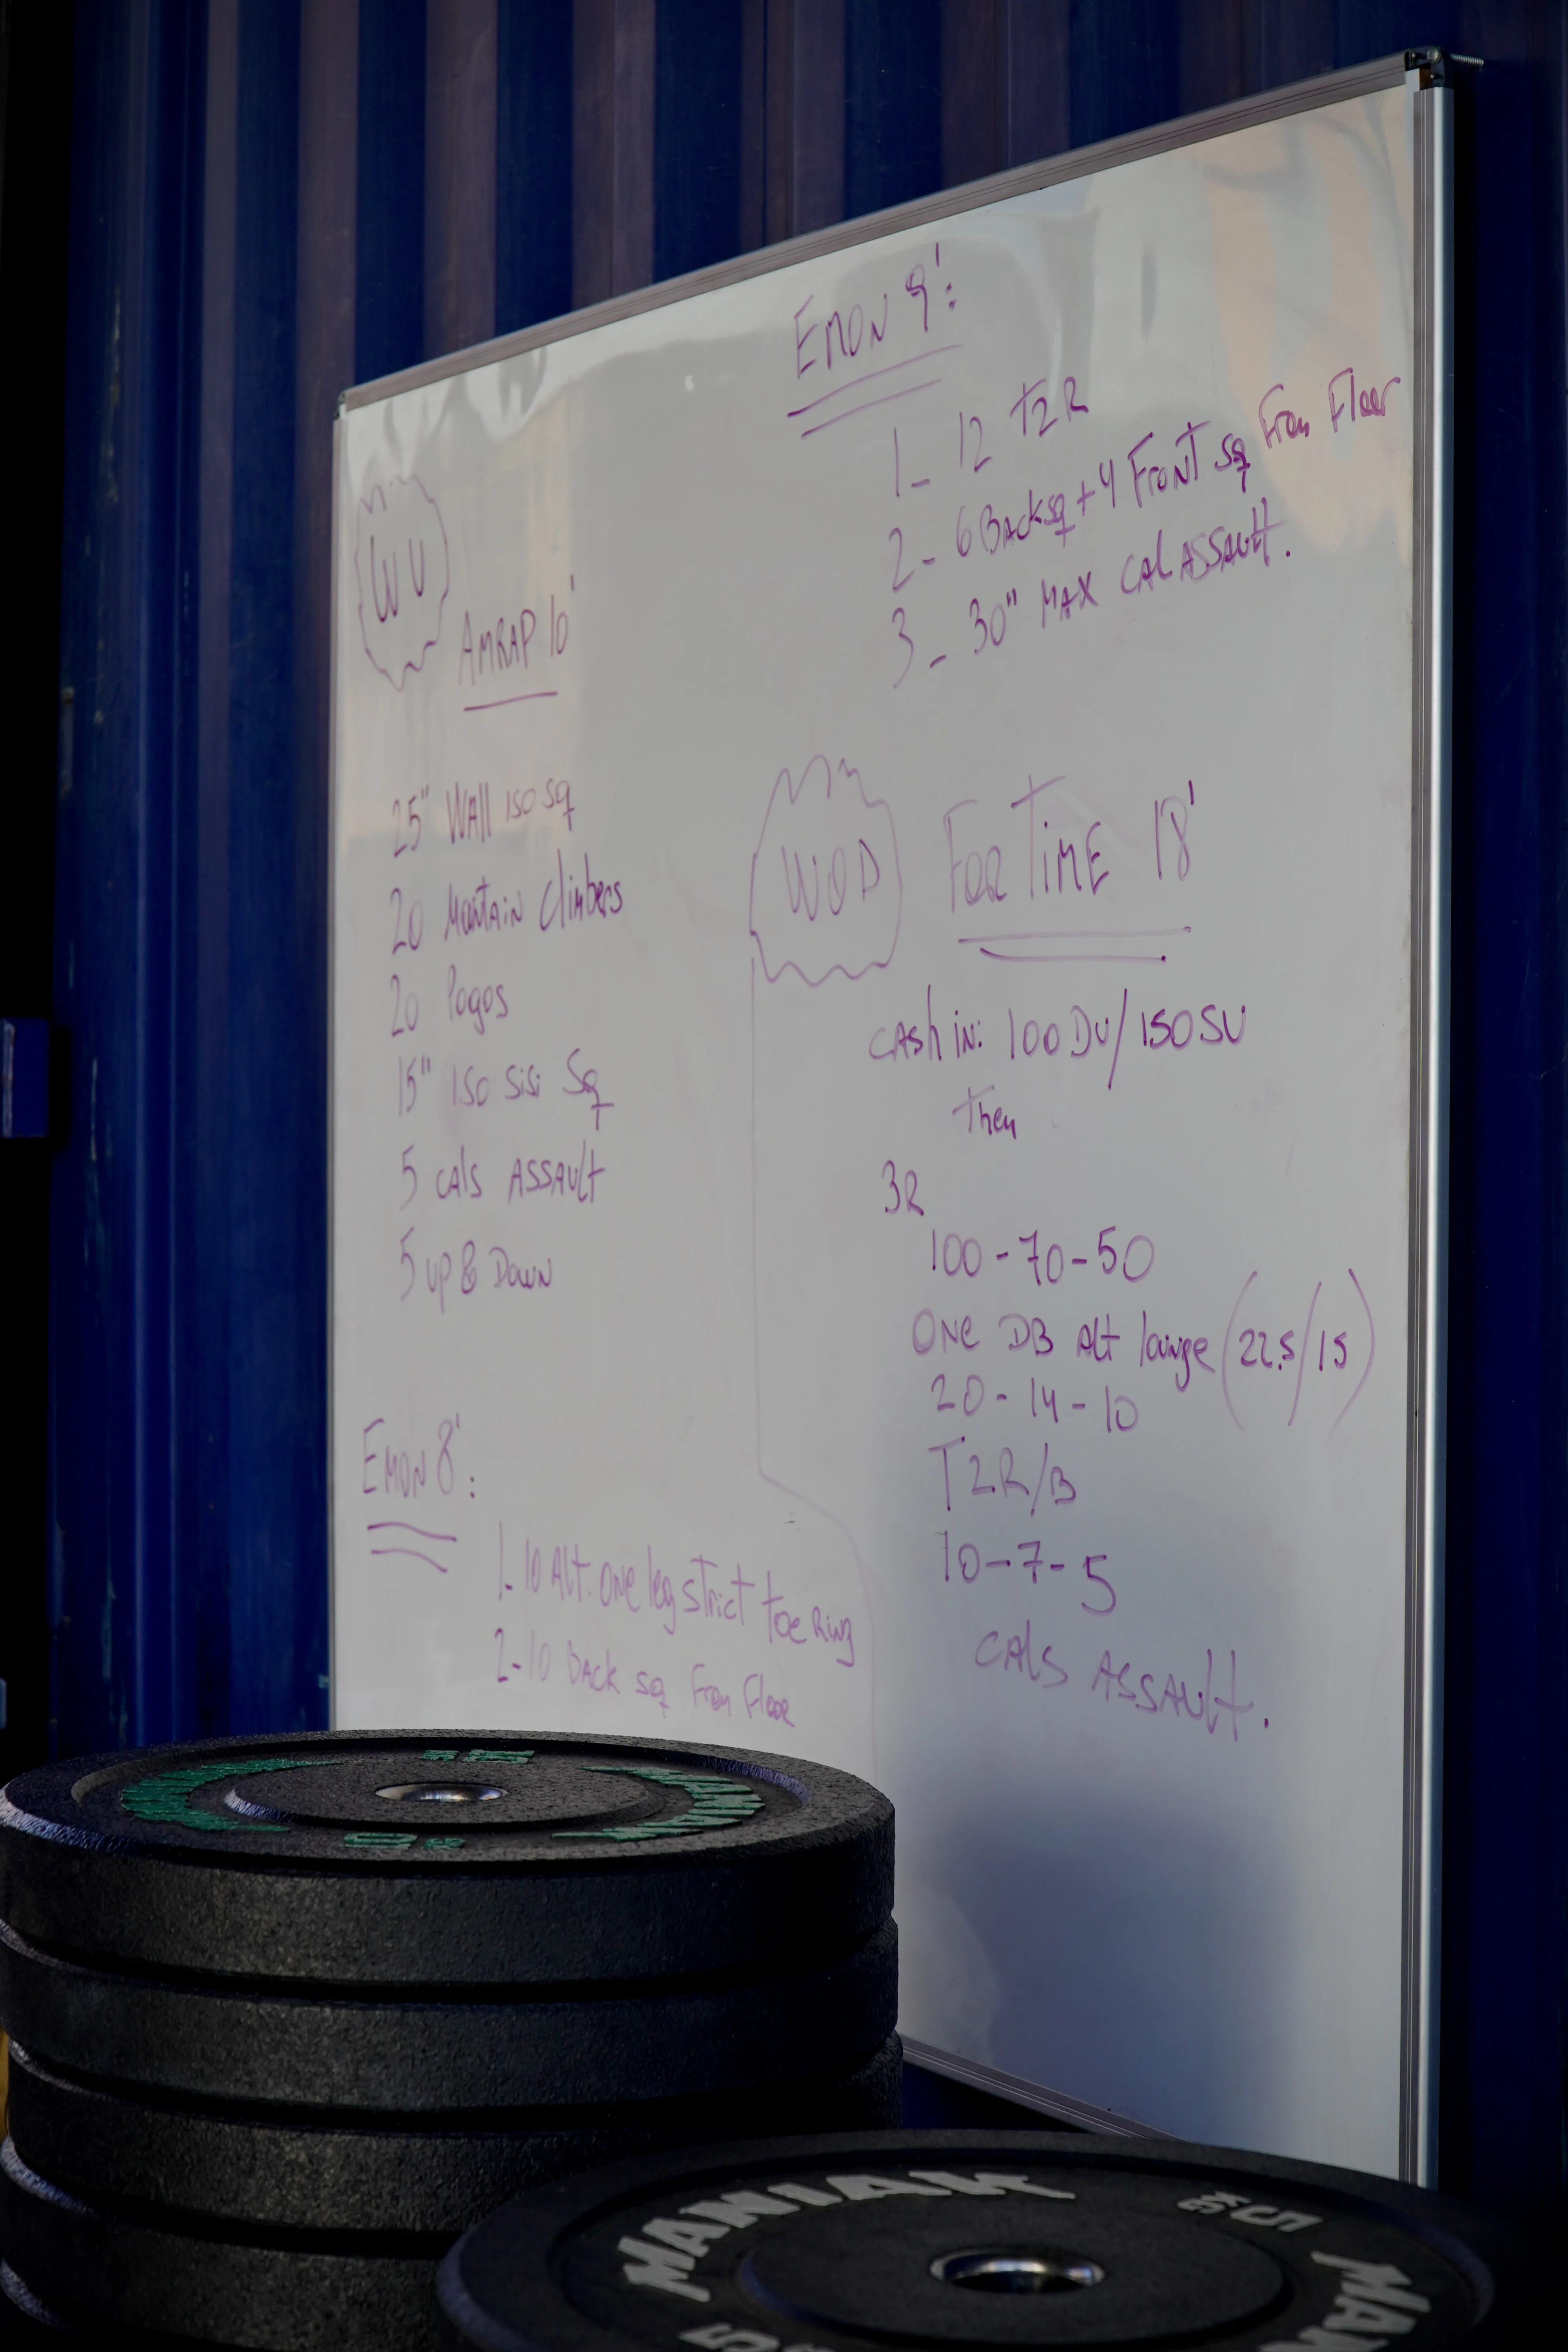 WU
AMRAP 10'
25" WAll ISO Sq
20 Mountain Climbers
20 Pogos
15" ISO SiSi Sq
5 CAls ASSAult
5 up & Down
EMON 8':
1- 10 Alt. one leg strict toe Ring
2- 10 BACK Sq From Floor
EMON 9':
1- 12 T2R
2- 6 BACKSq + 4 FRONT Sq From Floor
3- 30" MAX CAL ASSAult.
WOD
FOR TIME 18'
CASh iN: 100 DU/150 SU
Then
3R
100-70-50
ONE DB Alt lounge (22.5/15)
20-14-10
T2R/B
10-7-5
CAls ASSAult.
MANIAK
10 KG
MANIAK
5 KG